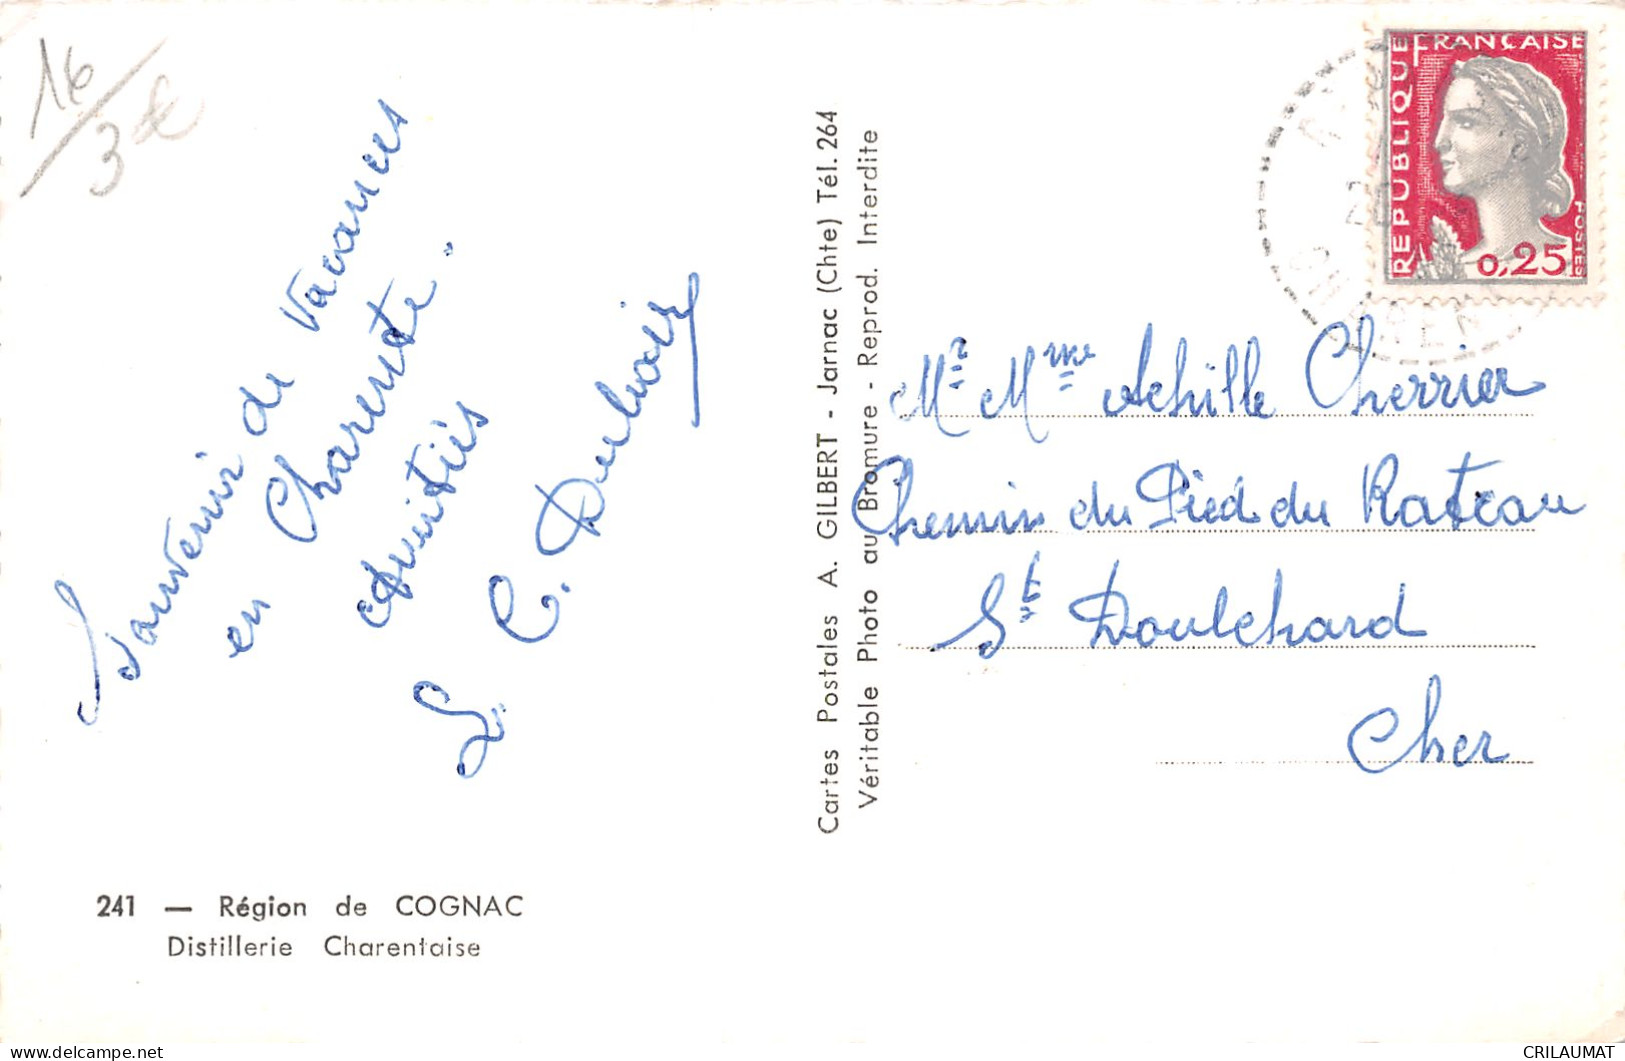 16
3€
Souvenir de Vacances
en Charente.
Amitiés
C.
241 — Région de COGNAC
Distillerie Charentaise
Cartes Postales A. GILBERT - Jarnac (Chte) Tél. 264
Véritable Photo au Bromure - Reprod. Interdite
RÉPUBLIQUE FRANÇAISE
POSTES
0,25
20
CHARENTE
Mr Mme Achille Cherrier
Chemin du Pied du Rateau
St Doulchard
Cher
CRILAUMAT